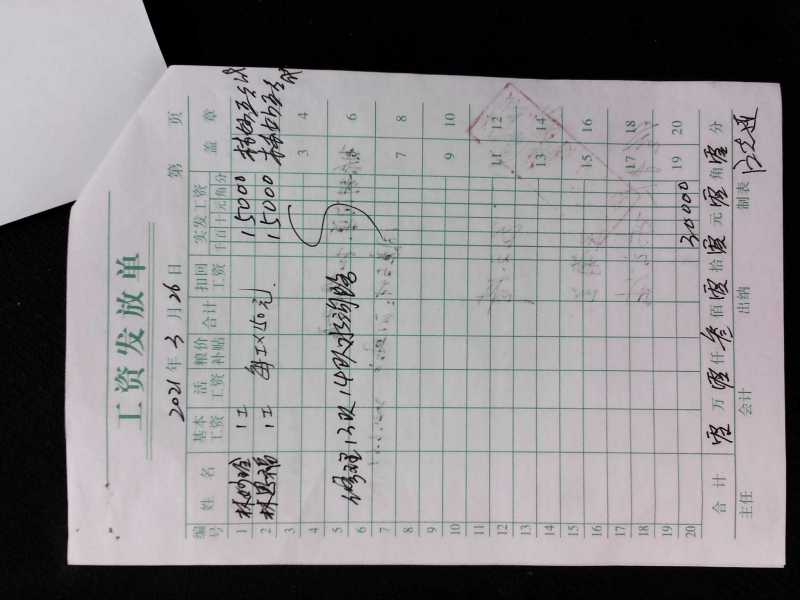 工资发放单
2021年3月26日 第 页
编号 姓名 基本工资 活工资 粮价补贴 合计 扣回工资 实发工资 千百十元角分 盖章
1 1工 15000
2 1工 每工×150元 15000
3 3 4
4
5 修理13队14队水沟路 5 6
6
7 7 8
8
9 9 10
10
11 11 12
12
13 13 14
14
15 15 16
16
17 17 18
18
19 19 20
20 30000
合计 零万零仟叁佰零拾零元零角零分
主任 会计 出纳 制表